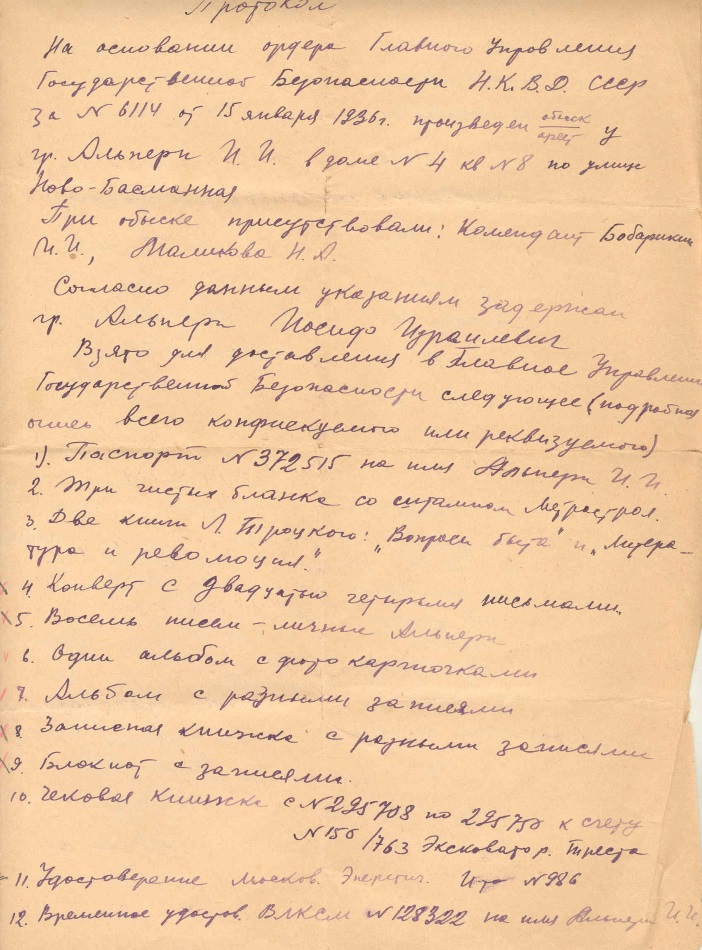 Протокол
На основании ордера Главного Управления
Государственной Безопасности Н.К.В.Д. СССР
за N 6114 от 15 января 1936г. произведен обыск арест у
гр. Альперн И. И. в доме N 4 кв N 8 по улице
Ново-Басманная
При обыске присутствовали: Комендант Бобарикин
И.И., Маликова Н. А.
Согласно данным указаниям задержан
гр. Альперн Иосиф Израилевич
Взято для доставления в Главное Управлени
Государственной Безопасности следующее (подробная
опись всего конфискуемого или реквизуемого)
1). Паспорт N 372515 на имя Альперн И. И.
2. Три чистых бланка со штампом Метростроя.
3. Две книги Л. Троцкого: „Вопросы быта" и „Литера-
тура и революция."
4. Конверт с двадцатью четырьмя письмами.
5. Восемь писем - личные Альперн
6. Один альбом с фото карточками
7. Альбом с разными записями
8. Записная книжка с разными записями
9. Блокнот с записями.
10. Чековая книжка с N 295708 по 295750 к счету
N 156/763 Эксковатор. Треста
11. Удостоверение Москов. Энергетич. N 986
12. Временное удостов. ВЛКСМ N 128322 на имя Альперн И. И.